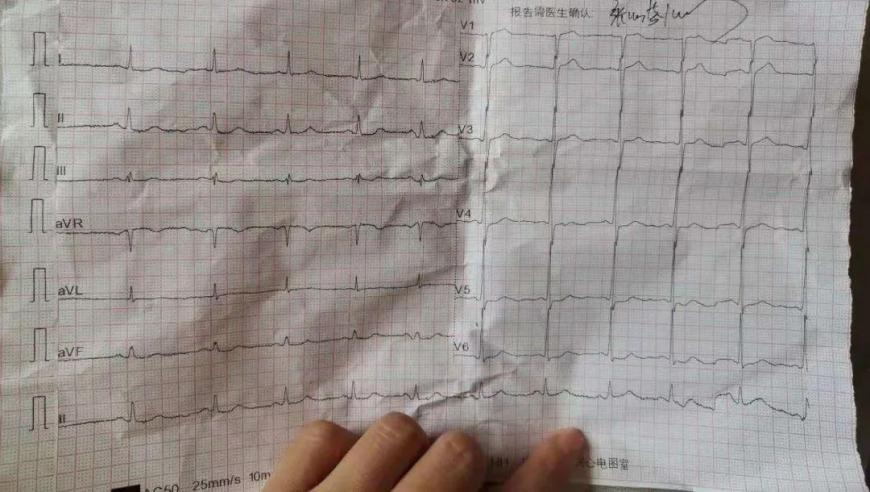 V1
报告需医生确认
I
V2
II
V3
III
V4
aVR
aVL
V5
aVF
V6
II
AC50 25mm/s 10m
心电图室